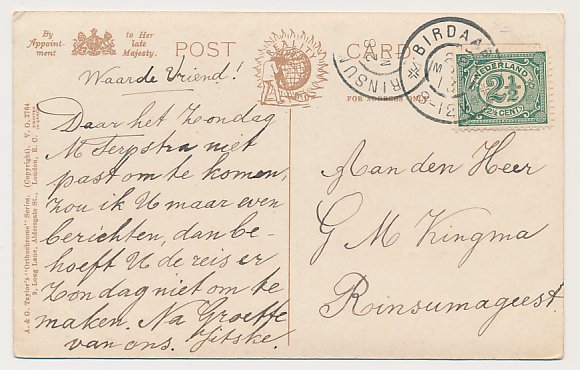 By
Appoint-
ment
to Her
late
Majesty.
POST
CARD
REALITY
FOR ADDRESS ON
BIRDAA
8-12
RINSUM
NEDERLAND
2½
2½ CENT
A. & G. Taylor's "Orthochrome" Series. (Copyright). V. O. 2764
9, Long Lane, Aldersgate St., London, E. C.
Waarde Vriend!
Daar het Zondag
M Terpstra niet
past om te komen,
zou ik U maar even
berichten, dan be-
hoeft U de reis er
Zondag niet om te
maken. Na Groette
van ons. Jitske.
Aan den Heer
G M Kingma
Rinsumageest.